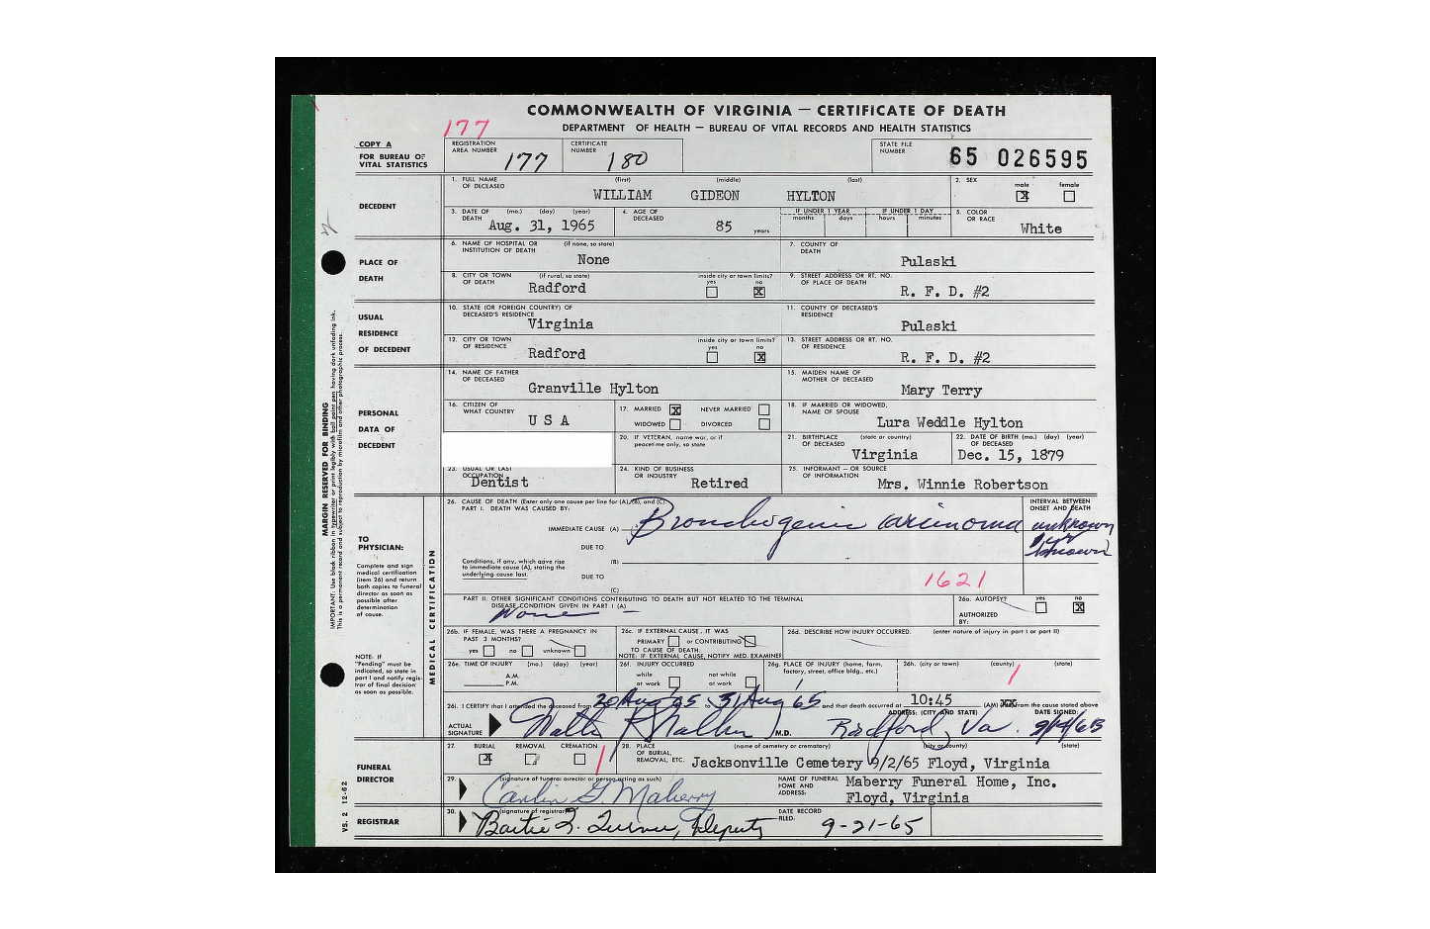 COMMONWEALTH OF VIRGINIA — CERTIFICATE OF DEATH
DEPARTMENT OF HEALTH — BUREAU OF VITAL RECORDS AND HEALTH STATISTICS
177
COPY A
FOR BUREAU OF VITAL STATISTICS
REGISTRATION AREA NUMBER 177
CERTIFICATE NUMBER 180
STATE FILE NUMBER 65 026595
DECEDENT
1. FULL NAME OF DECEASED (first) (middle) (last)
WILLIAM GIDEON HYLTON
2. SEX male X female
3. DATE OF DEATH (mo.) (day) (year) Aug. 31, 1965
4. AGE OF DECEASED 85 years
IF UNDER 1 YEAR months days
IF UNDER 1 DAY hours minutes
5. COLOR OR RACE White
PLACE OF DEATH
6. NAME OF HOSPITAL OR INSTITUTION OF DEATH (if none, so state) None
7. COUNTY OF DEATH Pulaski
8. CITY OR TOWN OF DEATH (if rural, so state) Radford
inside city or town limits? yes no X
9. STREET ADDRESS OR RT. NO. OF PLACE OF DEATH R. F. D. #2
USUAL RESIDENCE OF DECEDENT
10. STATE (OR FOREIGN COUNTRY) OF DECEASED'S RESIDENCE Virginia
11. COUNTY OF DECEASED'S RESIDENCE Pulaski
12. CITY OR TOWN OF RESIDENCE Radford
inside city or town limits? yes no X
13. STREET ADDRESS OR RT. NO. OF RESIDENCE R. F. D. #2
PERSONAL DATA OF DECEDENT
14. NAME OF FATHER OF DECEASED Granville Hylton
15. MAIDEN NAME OF MOTHER OF DECEASED Mary Terry
16. CITIZEN OF WHAT COUNTRY U S A
17. MARRIED X NEVER MARRIED
WIDOWED DIVORCED
18. IF MARRIED OR WIDOWED, NAME OF SPOUSE Lura Weddle Hylton
20. IF VETERAN, name war, or if peacetime only, so state
21. BIRTHPLACE OF DECEASED (state or country) Virginia
22. DATE OF BIRTH OF DECEASED (mo.) (day) (year) Dec. 15, 1879
23. USUAL OR LAST OCCUPATION Dentist
24. KIND OF BUSINESS OR INDUSTRY Retired
25. INFORMANT — OR SOURCE OF INFORMATION Mrs. Winnie Robertson
MARGIN RESERVED FOR BINDING
TO PHYSICIAN:
Complete and sign medical certification (item 26) and return both copies to funeral director as soon as possible after determination of cause.
NOTE: IF "Pending" must be indicated, so state in part I and notify registrar of final decision as soon as possible.
MEDICAL CERTIFICATION
26. CAUSE OF DEATH (Enter only one cause per line for (A), (B), and (C).)
PART I. DEATH WAS CAUSED BY:
INTERVAL BETWEEN ONSET AND DEATH
IMMEDIATE CAUSE (A) Bronchogenic carcinoma unknown
DUE TO
Conditions, if any, which gave rise to immediate cause (A), stating the underlying cause last.
(B)
DUE TO
(C)
1621
PART II. OTHER SIGNIFICANT CONDITIONS CONTRIBUTING TO DEATH BUT NOT RELATED TO THE TERMINAL DISEASE CONDITION GIVEN IN PART I (A)
None —
26a. AUTOPSY? yes no X
AUTHORIZED BY:
26b. IF FEMALE, WAS THERE A PREGNANCY IN PAST 3 MONTHS? yes no unknown
26c. IF EXTERNAL CAUSE, IT WAS PRIMARY or CONTRIBUTING TO CAUSE OF DEATH.
NOTE: IF EXTERNAL CAUSE, NOTIFY MED. EXAMINER
26d. DESCRIBE HOW INJURY OCCURRED. (enter nature of injury in part I or part II)
26e. TIME OF INJURY (mo.) (day) (year)
A.M.
P.M.
26f. INJURY OCCURRED while at work not while at work
26g. PLACE OF INJURY (home, farm, factory, street, office bldg., etc.)
26h. (city or town) (county) (state)
26i. I CERTIFY that I attended the deceased from 20 Aug 65 to 31 Aug 65 and that death occurred at 10:45 (AM) from the cause stated above
ACTUAL SIGNATURE M.D.
ADDRESS: (CITY AND STATE) Radford, Va.
DATE SIGNED: 9/14/65
FUNERAL DIRECTOR
27. BURIAL X REMOVAL CREMATION
28. PLACE OF BURIAL, REMOVAL, ETC. (name of cemetery or crematory) (city or county) (state)
Jacksonville Cemetery 9/2/65 Floyd, Virginia
29. (signature of funeral director or person acting as such)
Carlin G. Maberry
NAME OF FUNERAL HOME AND ADDRESS: Maberry Funeral Home, Inc.
Floyd, Virginia
REGISTRAR
30. (signature of registrar) Deputy
DATE RECORD FILED: 9-21-65
VS. 2 12-62